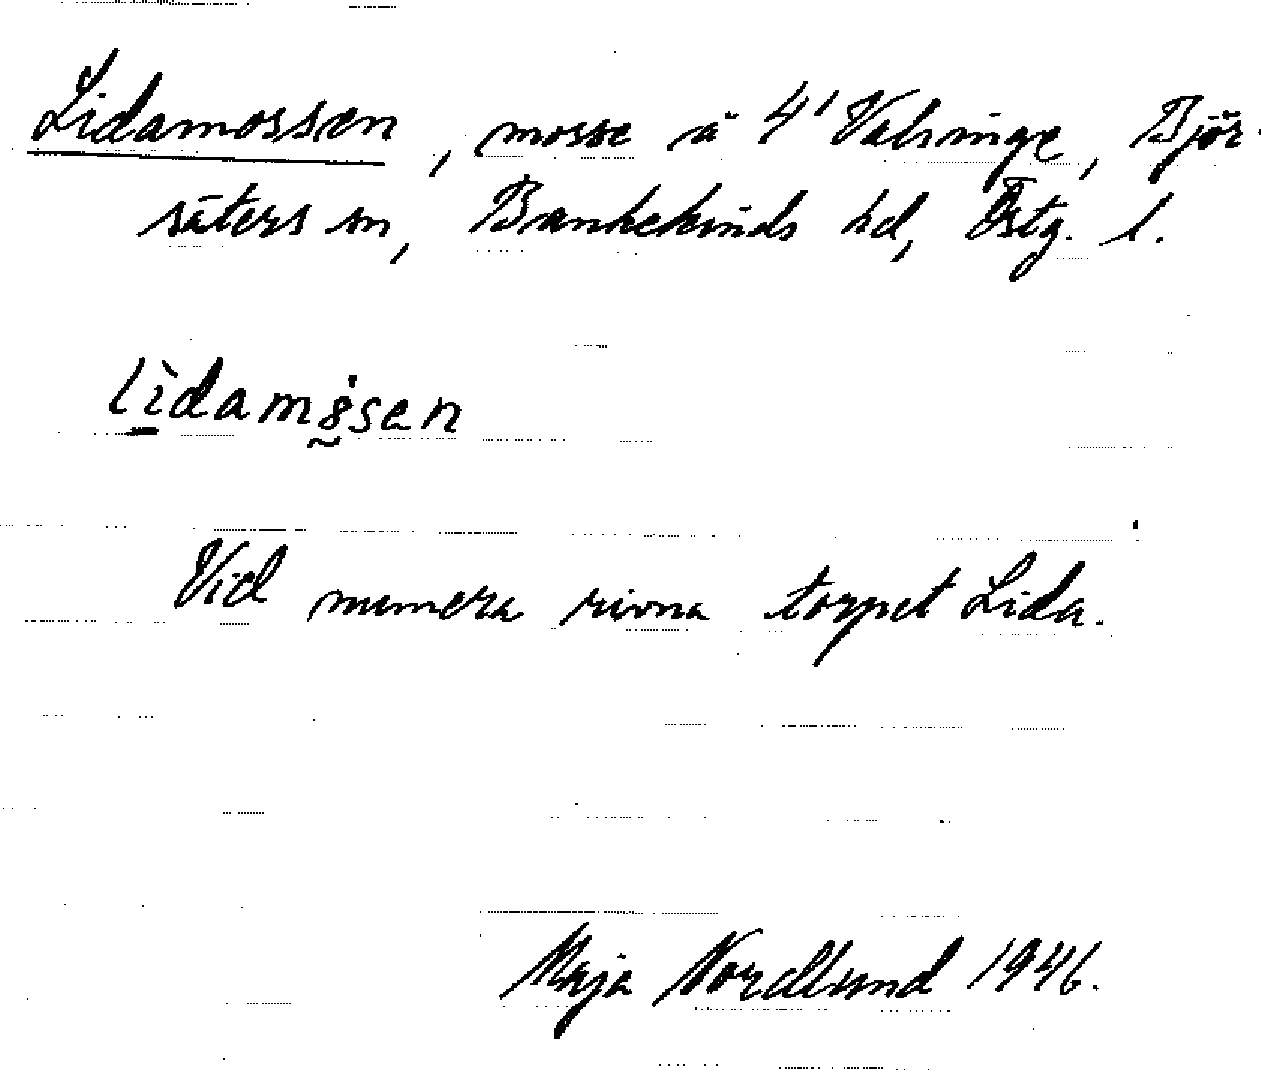 Lidamossen, mosse å 4¹ Valsinge, Björ-
säters sn, Bankekinds hd, Östg. l.
lìdamȯsen
Vid numera rivna torpet Lida.
Maja Nordlund 1946.